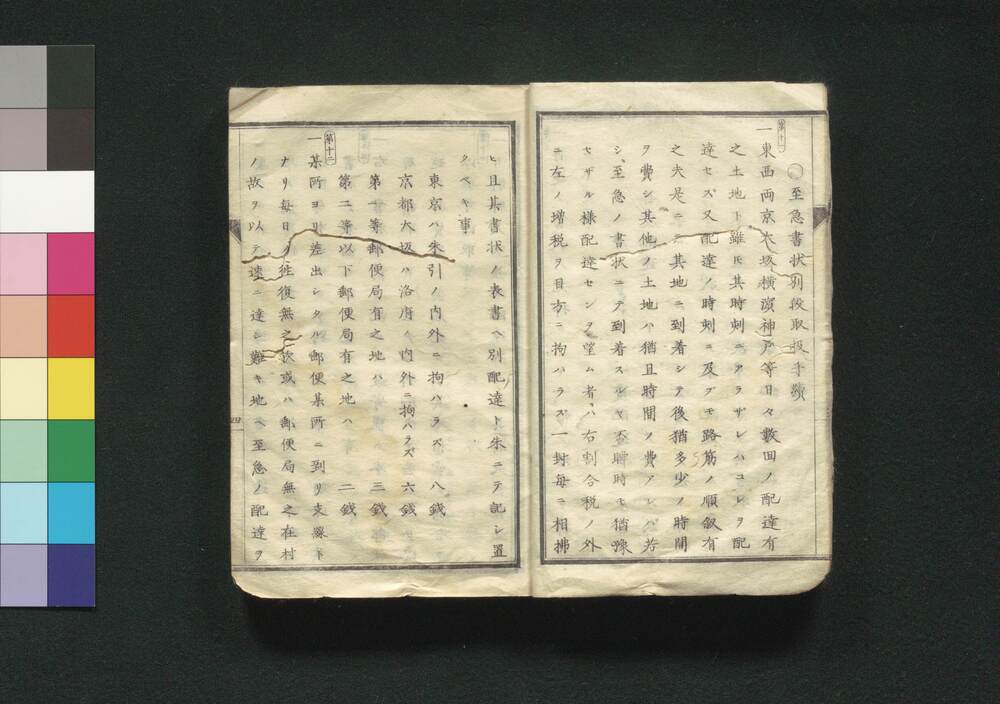 第十一
◯至急書状別段取扱手續
一東西両京大坂横濵神戸等日々數回ノ配達有
之土地ト雖𪜈其時刻ニアラザレハコレヲ配
達セズ又配達ノ時刻ニ及ブモ路筋ノ順叙有
之夫是ニテ其地ニ到着シテ後猶多少ノ時間
ヲ費シ其他ノ土地ハ猶且時間ノ費アレバ若
シ至急ノ書状ニテ到着スルヤ否瞬時モ猶豫
セザル様配達センヿヲ望ム者ハ右割合税ノ外
ニ左ノ増税ヲ目方ニ拘ハラズ一封毎ニ相拂
ヒ且其書状ノ表書ヘ別配達ト朱ニテ記シ置
クベキ事
東京ハ朱引ノ内外ニ拘ハラズ 八錢
京都大坂ハ洛府ノ内外ニ拘ハラズ 六錢
第一等郵便局有之地ハ 三錢
第二等以下郵便局有之地ハ 二錢
第十二
一某所ヨリ差出シタル郵便某所ニ到リ支線ト
ナリ毎日ノ往復無之欤或ハ郵便局無之在村
ノ故ヲ以テ速ニ達シ難キ地ヘ至急ノ配達ヲ
四